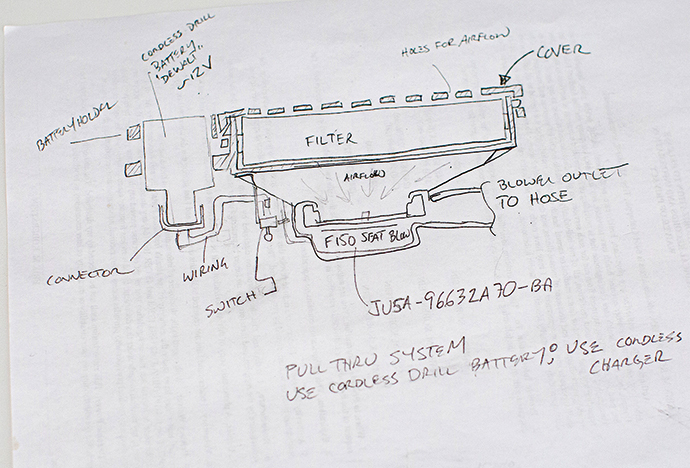 CORDLESS DRILL
BATTERY
"DEWALT"
~12V
HOLES FOR AIRFLOW
COVER
BATTERY HOLDER
FILTER
AIRFLOW
BLOWER OUTLET
TO HOSE
F150 SEAT BLOW
CONNECTOR
WIRING
SWITCH
JU5A-96632A70-BA
PULL THRU SYSTEM
USE CORDLESS DRILL BATTERY; USE CORDLESS
CHARGER